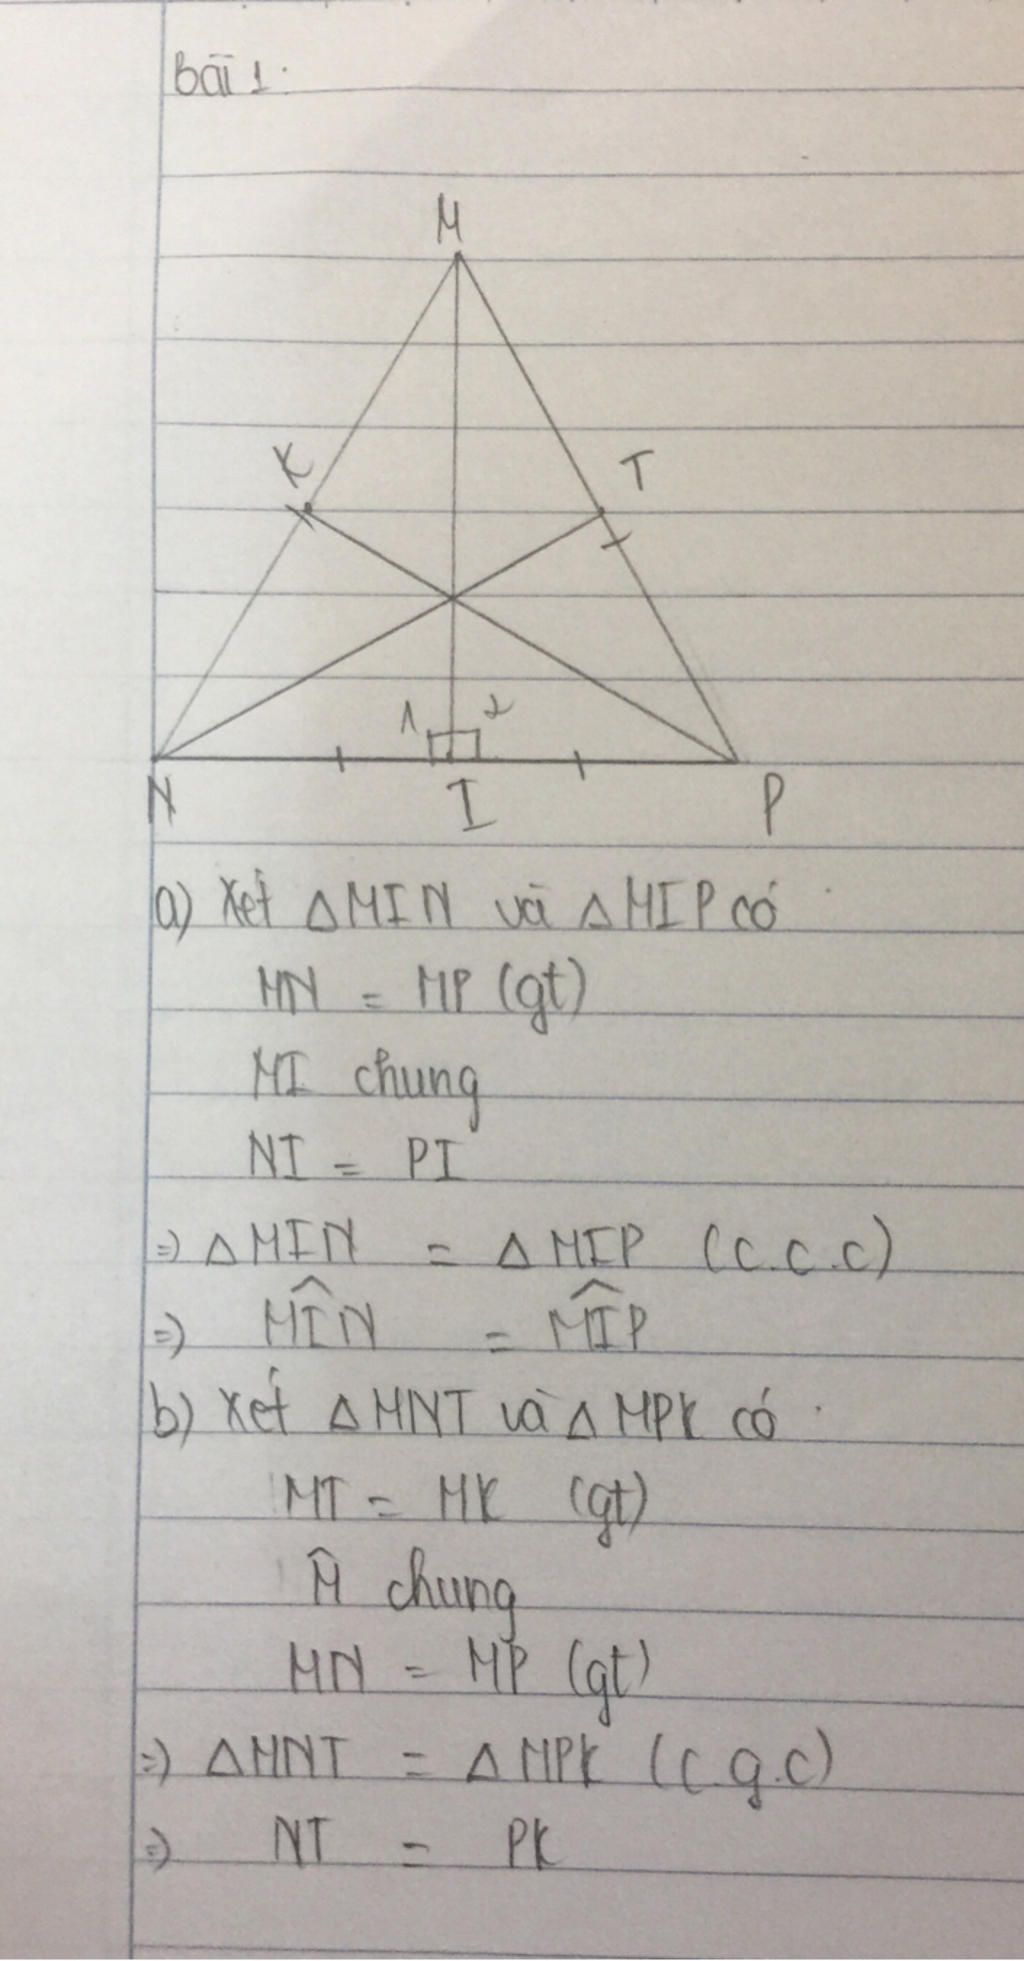 Bài 1:
M
K
T
1 2
N
I
P
a) Xét △MIN và △MIP có
MN = MP (gt)
MI chung
NI = PI
=> △MIN = △MIP (c.c.c)
=> M̂IN = M̂IP
b) Xét △MNT và △MPK có
MT = MK (gt)
M̂ chung
MN = MP (gt)
=> △MNT = △MPK (c.g.c)
=> NT = PK